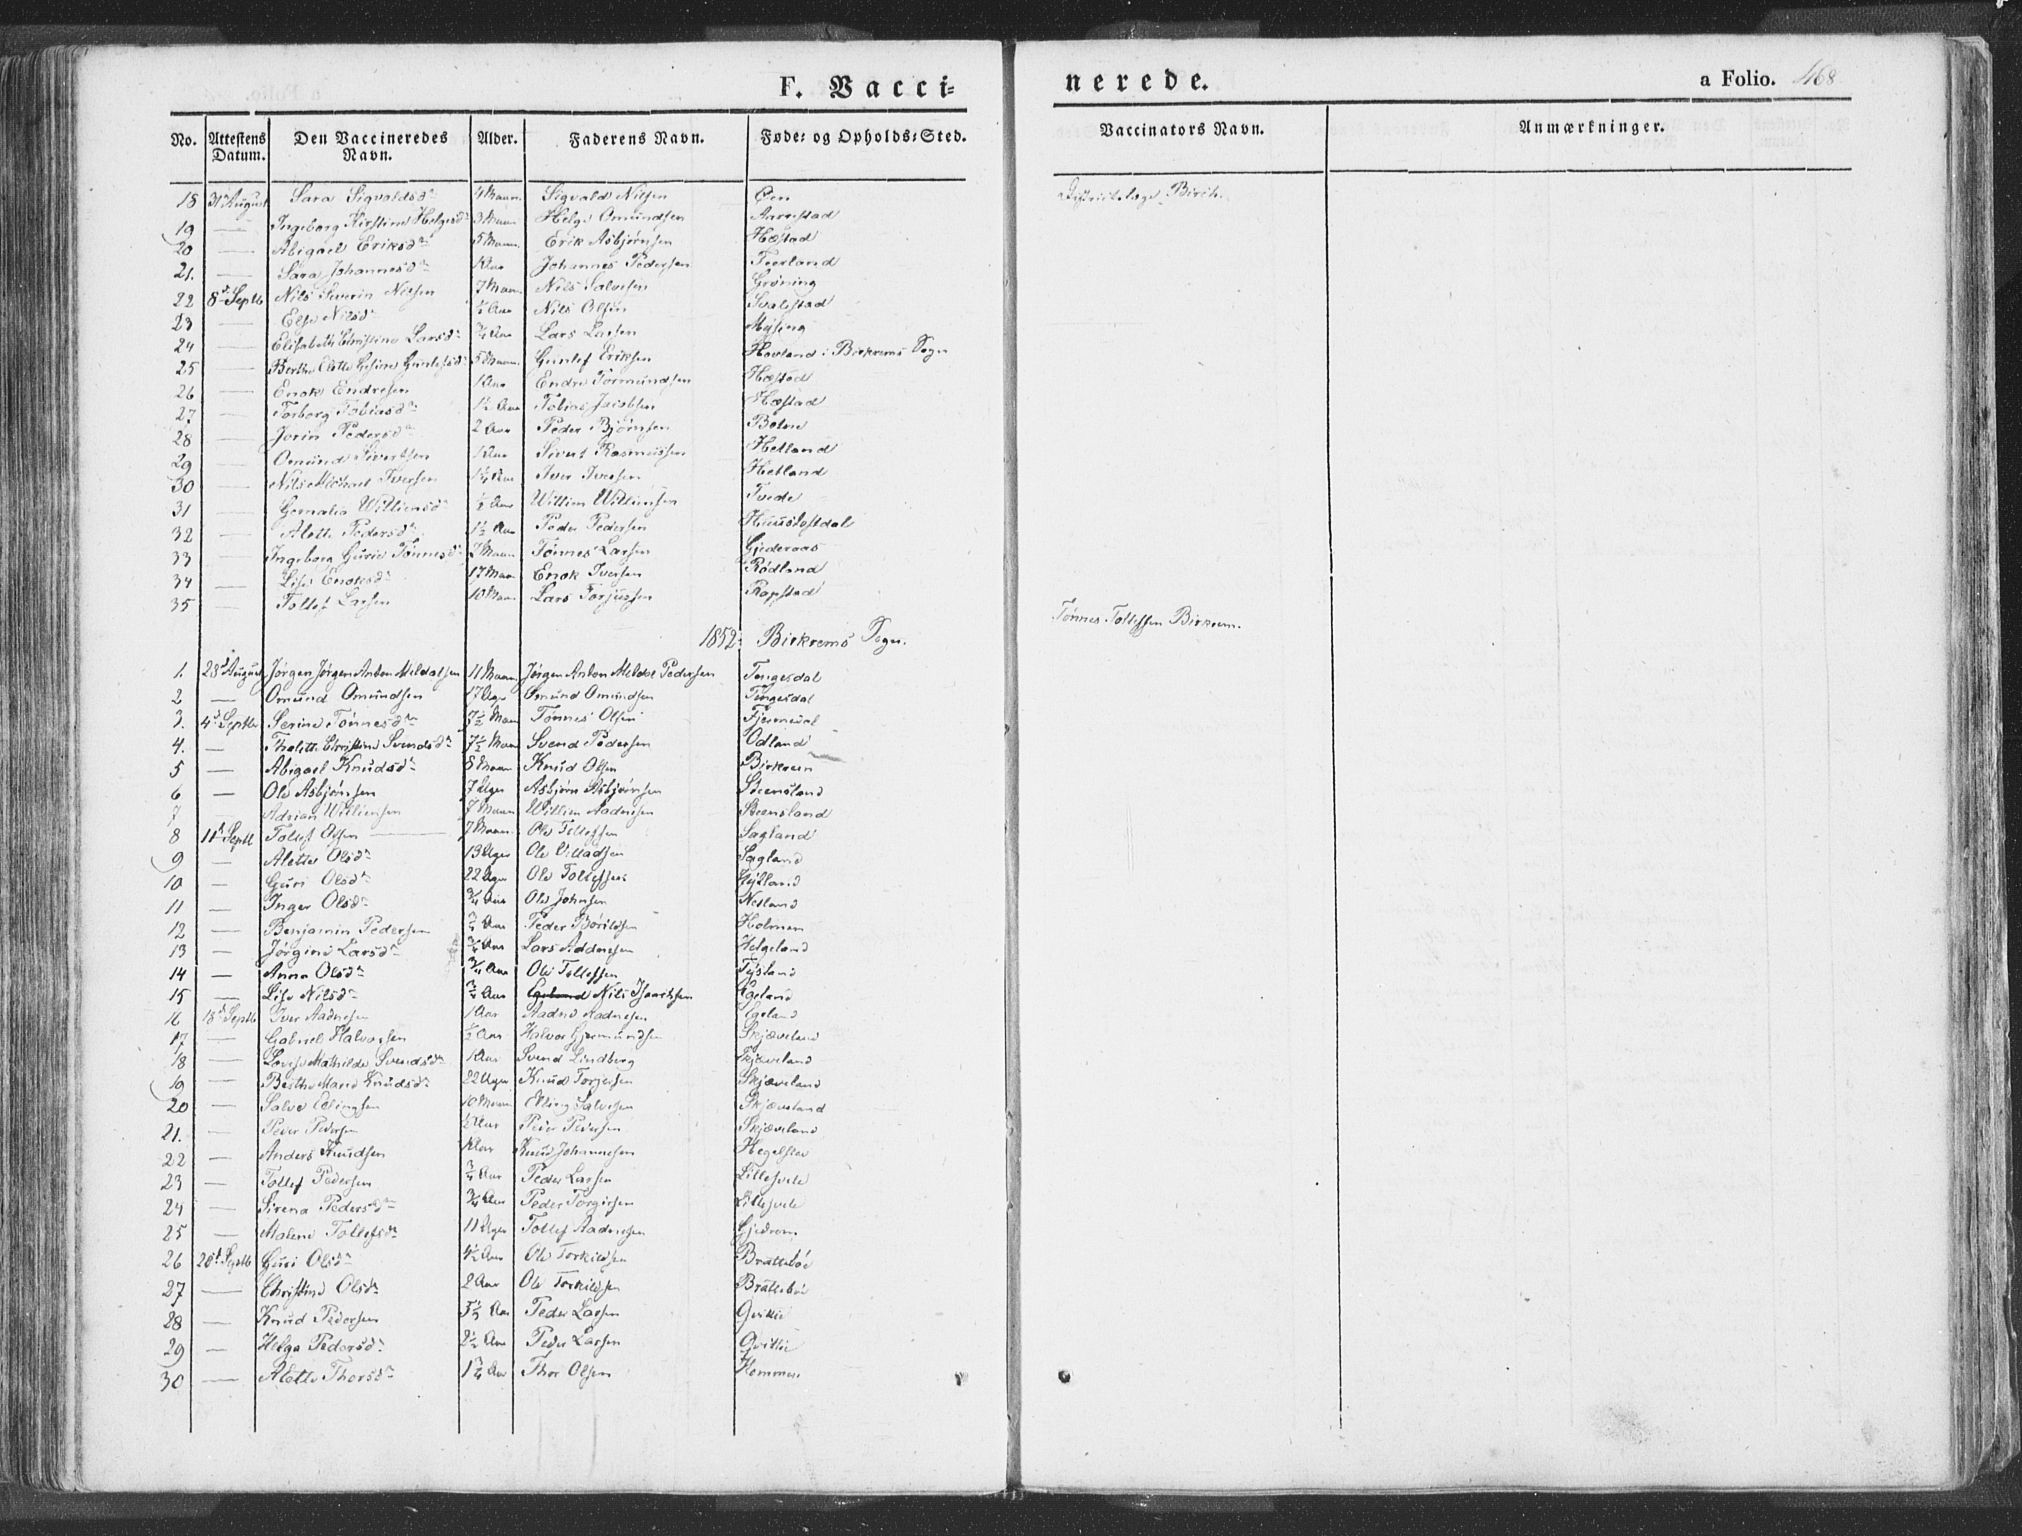 F. Vacci-
nerede.
a Folio. 468
No. Attestens Datum. Den Vaccineredes Navn. Alder. Faderens Navn. Føde- og Opholds-Sted. Vaccinators Navn. Anmærkninger.
18 31 August Sara Sigvaldsd 4 Maan Sigvald Nilsen Øen Districtslæge Birch.
19 — Ingeborg Kirstine Helgesd 3 Maan Helge Omundsen Aarrestad
20 — Abigael Eriksd 5 Maan Erik Asbjørnsen Hæstad
21. — Sara Johannesd 1 Aar Johannes Pedersen
22 8 Septb Nils Severin Nilsen 7 Maan Nils Salvesen Grøning
23 — Else Nilsd ½ Aar Nils Olsen Svalestad
24 — Elisabeth Christine Larsd ¾ Aar Lars Larsen Mysing
25 — Berthe Gunlefsd 5 Maan Gunlef Eriksen Hovland i Birkrems Sogn
26 — Enok Endresen 1 Aar Endre Tormundsen Hæstad
27 — Torborg Tobiasd 1½ Aar Tobias Jacobsen Hæstad
28 — Jorin Pedersd 2 Aar Peder Bjørnsen Botne
29 — Omund Sivertsen 1 Aar Sivert Rasmussen Hetland
30 — Nils Michael Iversen 1¼ Aar Iver Iversen Hetland
31 — Willumsd ½ Aar Willum Willumsen Tvede
32 — Alette Pedersd 1½ Aar Peder Pedersen
33 — Ingeborg Gurie Tønnesd 2 Maan Tønnes Larsen Gjederaas
34 — Lise Enoksd 17 Maan Enok Iversen Rødland
35 — Tollef Larsen 10 Maan Lars Torjussen Rapstad
1852: Birkrems Sogn. Tønnes Tollefsen Birkrem.
1. 28 August Jørgen Jørgen Anton Meldalsen 11 Maan Jørgen Anton Meldal Pedersen Tengesdal
2 — Omund Omundsen 17 Uger Omund Omundsen Tengesdal
3. 4 Septb Serine Tønnesd 7½ Maan Tønnes Olsen Fjermedal
4. — Thalette Christine Svendsd 7½ Maan Svend Pedersen Odland
5 — Abigael Knudsd 8 Maan Knud Olsen Birkrem
6 — Ole Asbjørnsen 7 Uger Asbjørn Asbjørnsen Steensland
7 Adrian Willumsen 7 Maan Willum Aadnesen Steensland
8 11 Septb Tollef Olsen 7 Maan Ole Tollefsen Sagland
9 — Alette Olsd 13 Uger Ole Villadsen Sagland
10 — Guri Olsd 22 Uger Ole Tollefsen
11 — Inger Olsd ¾ Aar Ole Johnsen Netland
12 — Benjamin Pedersen ¾ Aar Peder Børildsen Holmen
13 — Jørgine Larsd ¾ Aar Lars Addnesen Helgeland
14 — Anna Olsd ¾ Aar Ole Tollefsen Tysland
15 — Lise Nilsd ¾ Aar Nils Isaaksen Egeland
16 18 Septb Iver Aadnesen 1 Aar Aadne Aadnesen Egeland
17 — Gabriel Halvorsen ½ Aar Halvor Gjermundsen Skjæveland
18 — Lovise Mathilde Svendsd 1 Aar Svend Lindberg Skjæveland
19 — Berthe Marie Knudsd 22 Uger Knud Torjersen Skjæveland
20 — Salve Ellingsen 10 Maan Elling Salvesen Skjæveland
21. — Peder Pedersen ½ Aar Peder Pedersen Skjæveland
22 — Anders Knudsen 1 Aar Knud Johannesen Hegelstad
23 — Tollef Pedersen ¾ Aar Peder Larsen
24 — Sirena Pedersd ¾ Aar Peder Torgersen
25 — Malene Tollefsd 11 Uger Tollef Aadnesen Gjedrem
26 20 Septb Guri Olsd 4½ Aar Ole Torkildsen Brattebøe
27 — Christine Olsd 2 Aar Ole Torkildsen Brattebøe
28 — Knud Pedersen 5½ Aar Peder Larsen
29 — Helga Pedersd 2½ Aar Peder Larsen
30 — Alette Thorsd 1¾ Aar Thor Olsen